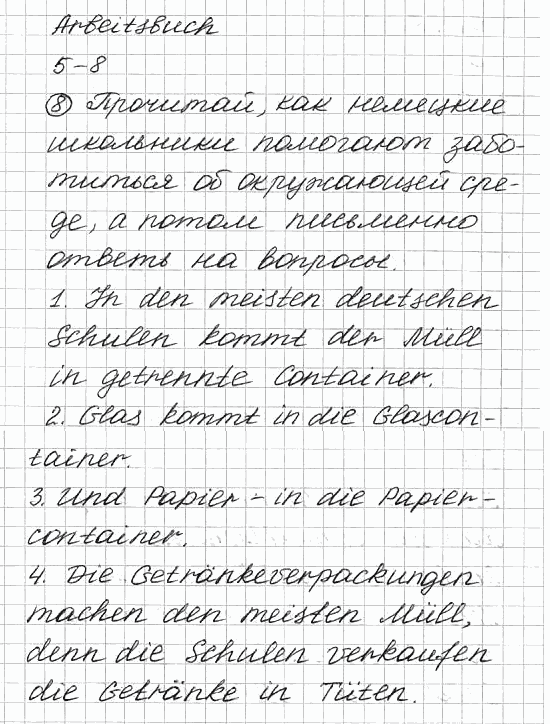 Arbeitsbuch
5-8
⑧ Прочитай, как немецкие
школьники помогают забо-
титься об окружающей сре-
де, а потом письменно
ответь на вопросы.
1. In den meisten deutschen
Schulen kommt der Müll
in getrennte Container.
2. Glas kommt in die Glascon-
tainer.
3. Und Papier - in die Papier-
container.
4. Die Getränkeverpackungen
machen den meisten Müll,
denn die Schulen verkaufen
die Getränke in Tüten.